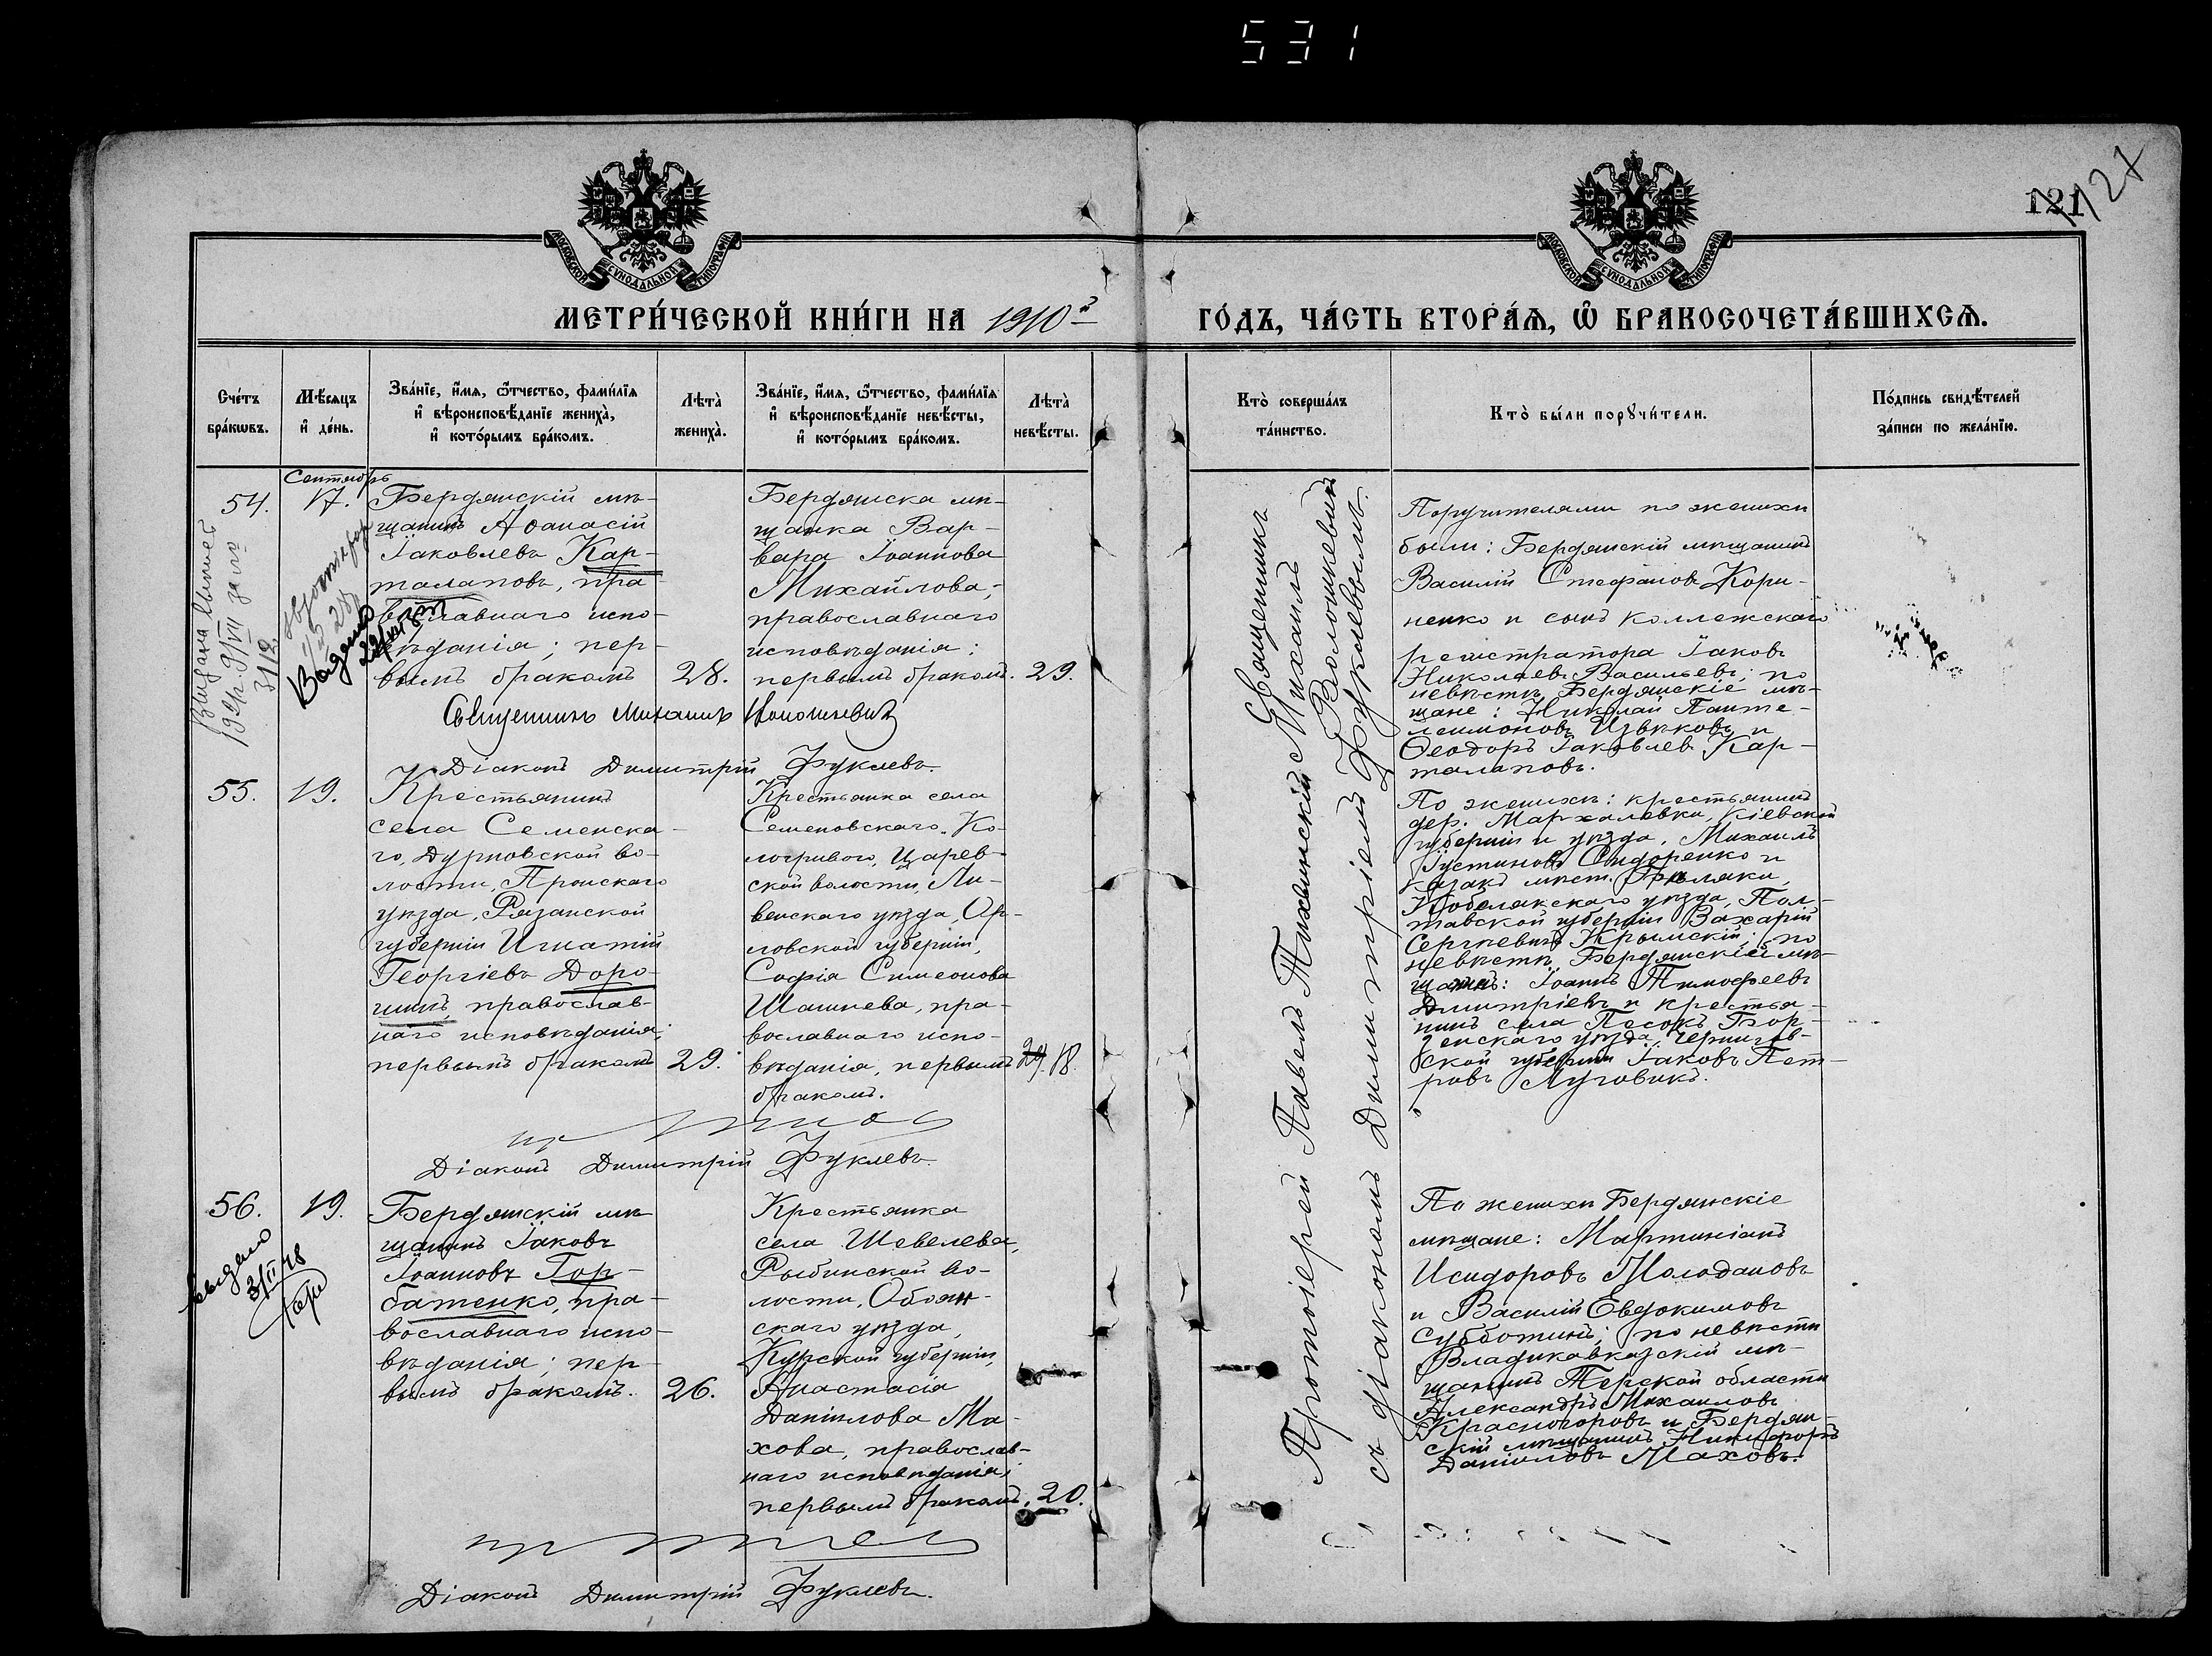 531
121
127
МОСКОВСКОЙ СѴНОДАЛЬНОЙ ТИПОГРАФІИ
МОСКОВСКОЙ СѴНОДАЛЬНОЙ ТИПОГРАФІИ
МЕТРИ́ЧЕСКОЙ КНИ́ГИ НА 1910й
ГО́ДЪ, ЧА́СТЬ ВТОРА́Ѧ, Ѡ҆ БРАКОСОЧЕТА́ВШИХСѦ.
Сче́тъ бра́кѡвъ.
Мѣ́сѧцъ и҆ де́нь.
Зва́нїе, и҆́мѧ, ѻ҆́тчество, фами́лїѧ
и҆ вѣроисповѣ́данїе жениха̀,
и҆ кото́рымъ бра́комъ.
Лѣта̀ жениха̀.
Зва́нїе, и҆́мѧ, ѻ҆́тчество, фами́лїѧ
и҆ вѣроисповѣ́данїе невѣ́сты,
и҆ кото́рымъ бра́комъ.
Лѣта̀ невѣ́сты.
Кто̀ соверша́лъ та́инство.
Кто̀ бы́ли порꙋчи́тели.
По́дпись свидѣ́телей
за́писи по жела́нїю.
Сентябрь
54.
17.
Бердянскій мѣ-
щанинъ Аѳанасій
Іаковлевъ Кар-
талаповъ, пра-
вославнаго испо-
вѣданія; пер-
вымъ бракомъ
28.
Бердянска мѣ-
щанка Вар-
вара Іоаннова
Михайлова,
православнаго
исповѣданія;
первымъ бракомъ.
29.
Священникъ Михаилъ Волошкевичъ
Діаконъ Димитрій Фуклевъ.
Поручителями по женихѣ
были: Бердянскій мѣщанинъ
Василій Стефановъ Кори-
ненко и сынъ коллежскаго
регистратора Іаковъ
Николаевъ Васильевъ; по
невѣстѣ Бердянскіе мѣ-
щане: Николай Панте-
леимоновъ Цѣвковъ и
Ѳеодоръ Іаковлевъ Кар-
талаповъ.
55.
19.
Крестьянинъ
села Семенска-
го, Дурновской во-
лости, Пронскаго
уѣзда, Рязанской
губерніи Игнатій
Георгіевъ Доро-
нинъ, православ-
наго исповѣданія;
первымъ бракомъ
29.
Крестьянка села
Семеновскаго, Ко-
логривого, Царев-
ской волости, Ли-
венскаго уѣзда, Ор-
ловской губерніи,
Софія Симеонова
Шашнева, пра-
вославнаго испо-
вѣданія, первымъ
бракомъ.
29. 18.
Діаконъ Димитрій Фуклевъ.
По женихѣ: крестьянинъ
дер. Мархалевки, Кіевской
губерніи и уѣзда, Михаилъ
Іустиновъ Сидоренко и
казакъ мѣст. Бѣлики,
Кобелякскаго уѣзда, Пол-
тавской губерніи Захарій
Сергѣевичъ Крымскій; по
невѣстѣ Бердянскій мѣ-
щанинъ: Іоаннъ Тимофеевъ
Дмитріевъ и крестья-
нинъ села Песокъ Бор-
зенскаго уѣзда, Чернигов-
ской губерніи Іаковъ Пет-
ровъ Луговикъ.
56.
19.
Бердянскій мѣ
щанинъ Іаковъ
Іоанновъ Гор-
батенко, пра-
вославнаго испо-
вѣданія; пер-
вымъ бракомъ.
26.
Крестьянка
села Шевелева,
Рыбинской во-
лости, Обоян-
скаго уѣзда,
Курской губерніи,
Анастасія
Даніилова Ма-
хова, православ-
наго исповѣданія;
первымъ бракомъ.
20.
Діаконъ Димитрій Фуклевъ.
По женихѣ Бердянскіе
мѣщане: Мартиніанъ
Исидоровъ Молодановъ
и Василій Евдокимовъ
Субботинъ; по невѣстѣ
Владикавказскій мѣ-
щанинъ Терской области
Александръ Михаиловъ
Красногоровъ и Бердян-
скій мѣщанинъ Никифоръ
Даніиловъ Маховъ.
Протоіерей Павелъ Тихвинскій
Священникъ Михаилъ Волошкевичъ
съ діакономъ Димитріемъ Фуклевымъ.
Выдано
Выдано
3/II 28